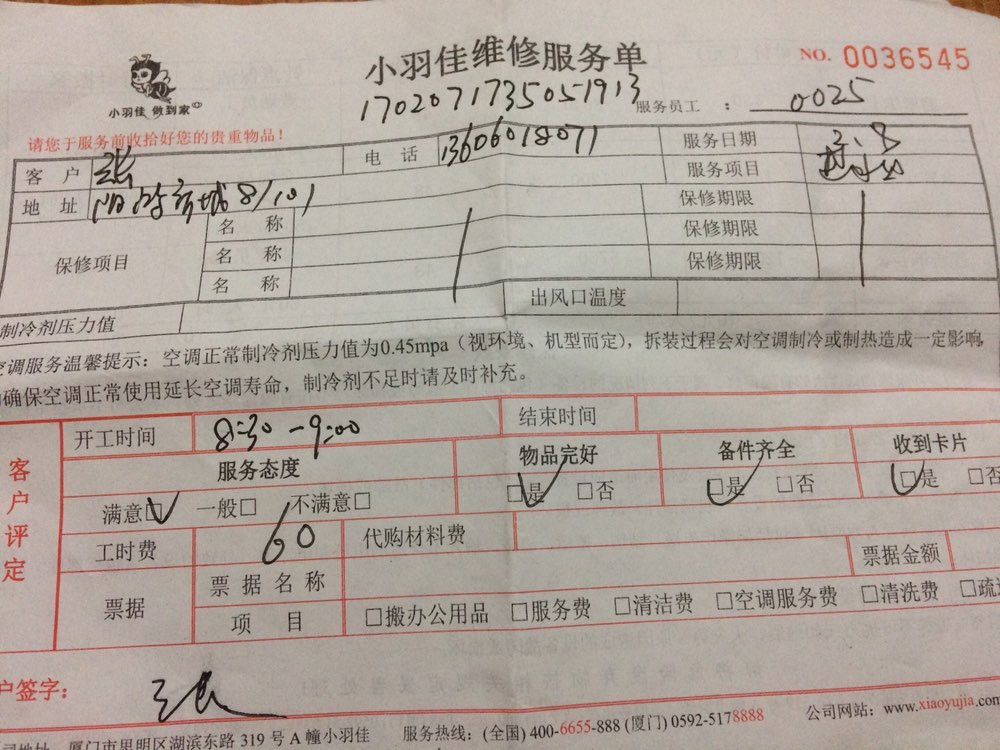 小羽佳维修服务单
NO. 0036545
小羽佳 做到家
1702071735051913
服务员工 ： 0025
请您于服务前收拾好您的贵重物品！
客 户 张 电 话 13606018071 服务日期
地 址 8/101 服务项目
保修项目 名 称 保修期限
名 称 保修期限
名 称 保修期限
制冷剂压力值 出风口温度
空调服务温馨提示：空调正常制冷剂压力值为0.45mpa（视环境、机型而定），拆装过程会对空调制冷或制热造成一定影响
确保空调正常使用延长空调寿命，制冷剂不足时请及时补充。
客户评定
开工时间 8:30-9:00 结束时间
服务态度 物品完好 备件齐全 收到卡片
满意□ 一般□ 不满意□ □是 □否 □是 □否 □是 □否
工时费 60 代购材料费
票据 票据名称 票据金额
项 目 □搬办公用品 □服务费 □清洁费 □空调服务费 □清洗费 □疏
户签字： 张
司地址：厦门市思明区湖滨东路 319 号 A 幢小羽佳 服务热线：(全国) 400-6655-888 (厦门) 0592-5178888 公司网站：www.xiaoyujia.com